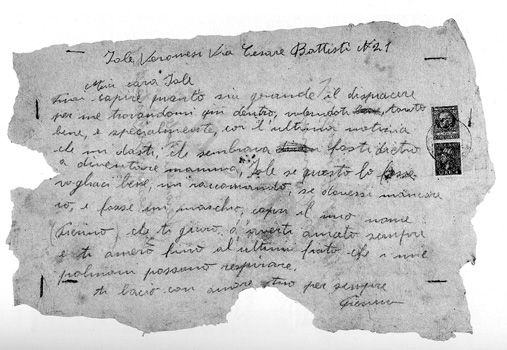 Iole Veronesi Via Cesare Battisti N° 21
Mia cara Iole
capire quanto sia grande il dispiacere
per me trovandomi qui dentro, volendoti tanto
bene, e specialmente, con l'ultima notizia
che mi dasti, che sembrava fosti dietro
a diventare mamma, Iole se questo lo fosse
vogliaci bene, mi raccomando, se dovessi mancare
io, e fosse un maschio, il mio nome
che ti giuro, d'averti amato sempre
e ti amerò fino al ultimi fiato che i miei
polmoni possono respirare.
ti bacio con amore tuo per sempre